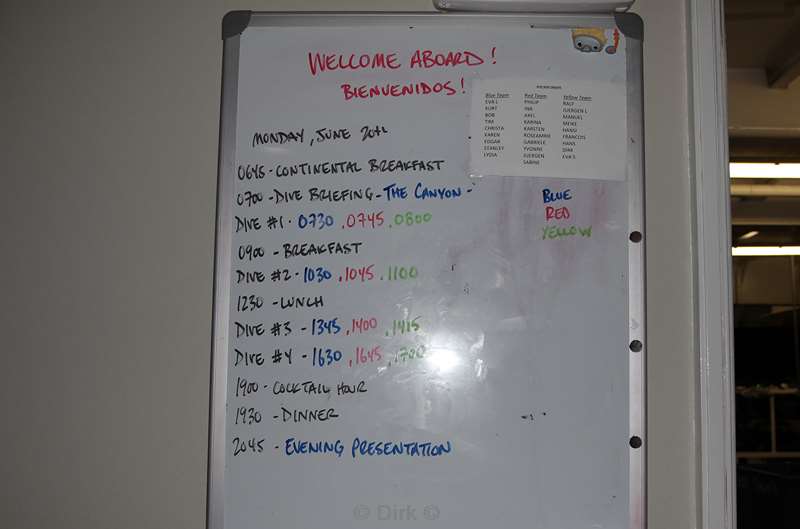 WELCOME ABOARD!
BIENVENIDOS!
MONDAY, JUNE 20th
0645 - CONTINENTAL BREAKFAST
0700 - DIVE BRIEFING - THE CANYON -
DIVE #1 - 0730, 0745, 0800
0900 - BREAKFAST
DIVE #2 - 1030, 1045, 1100
1230 - LUNCH
DIVE #3 - 1345, 1400, 1415
DIVE #4 - 1630, 1645, 1700
1900 - COCKTAIL HOUR
1930 - DINNER
2045 - EVENING PRESENTATION
Blue Team Red Team Yellow Team
EVA L PHILIP RALF
KURT INA JUERGEN L
BOB AXEL MANUEL
TIM KARINA MEIKE
CHRISTA KARSTEN HANSI
KAREN ROSEAMRIE FRANCOIS
EDGAR GABRIELE HANS
STANLEY YVONNE DIRK
LYDIA JUERGEN EVA S
SABINE
BLUE
RED
YELLOW
© Dirk ©